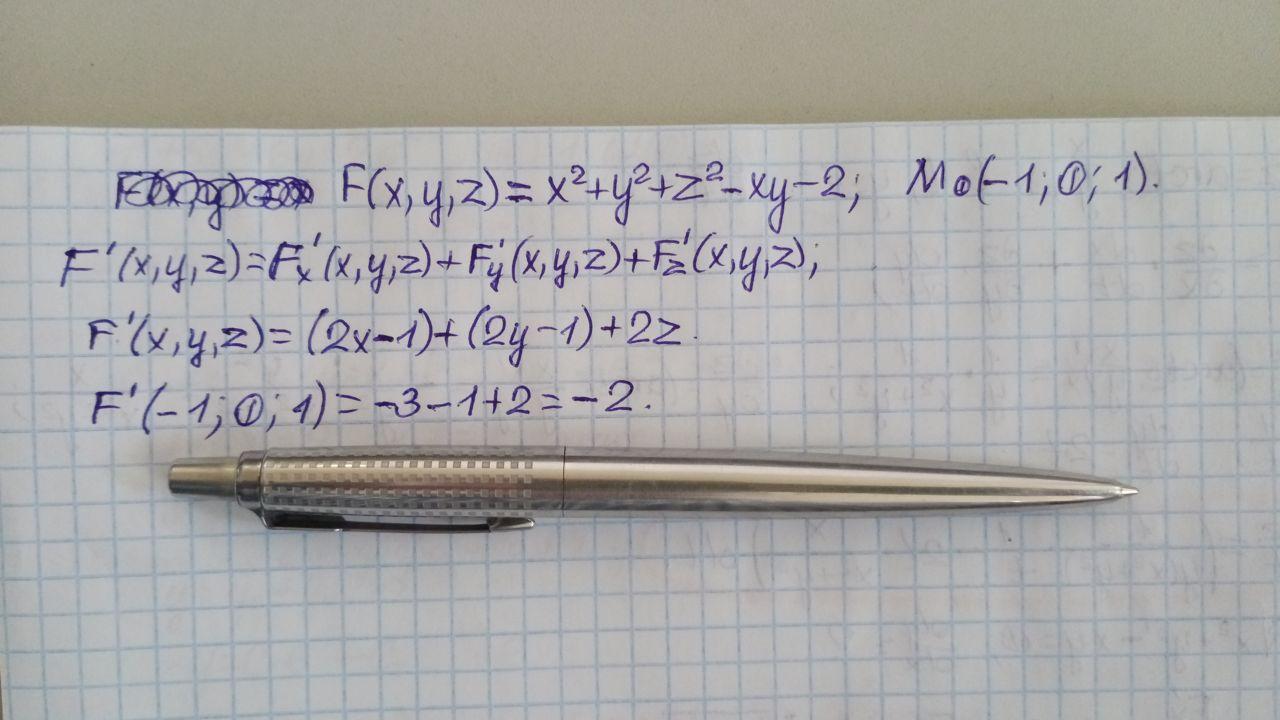 F(x,y,z)=x²+y²+z²-xy-2; M₀(-1;0;1).
F'(x,y,z)=Fₓ'(x,y,z)+Fy'(x,y,z)+F_z'(x,y,z);
F'(x,y,z)=(2x-1)+(2y-1)+2z.
F'(-1;0;1)=-3-1+2=-2.